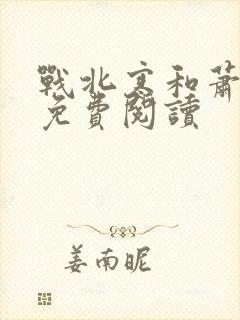 戰北寒和蕭
免費閱讀
姜南昵